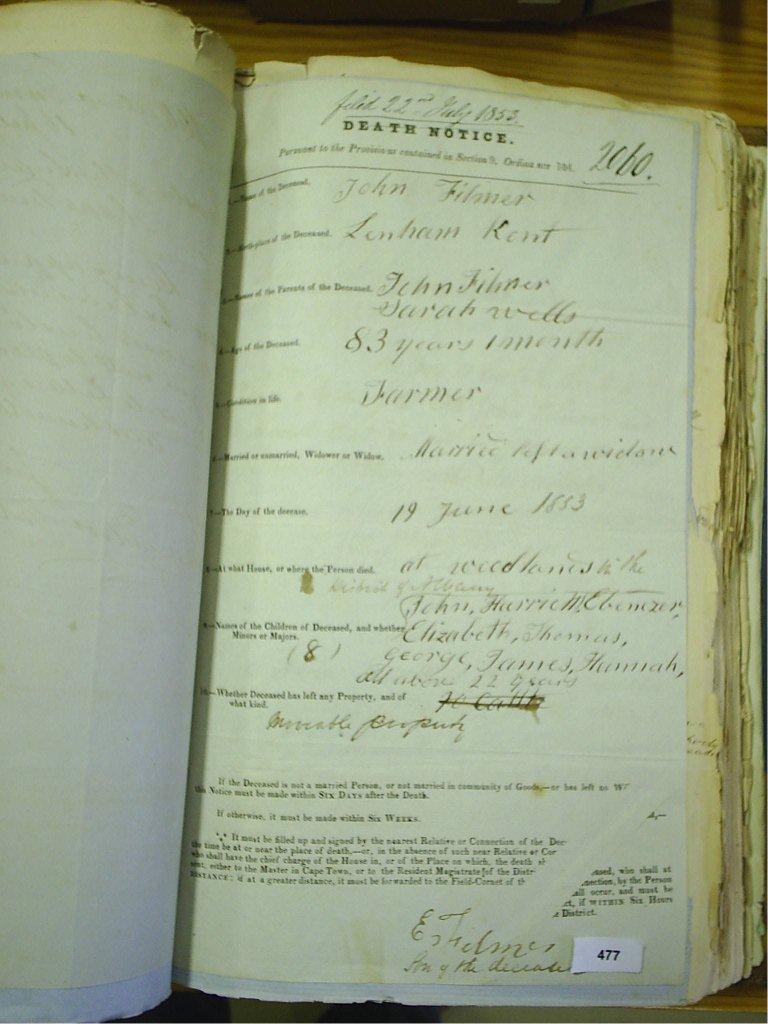 filed 22nd July 1853
DEATH NOTICE.
Pursuant to the Provisions contained in Section 9, Ordinance 104. 2060.
1.—Name of the Deceased. John Filmer
2.—Birth-place of the Deceased. Lenham Kent
3.—Names of the Parents of the Deceased. John Filmer
Sarah wells
4.—Age of the Deceased. 83 years 1 month
5.—Condition in life. Farmer
6.—Married or unmarried, Widower or Widow. Married left a widow
7.—The Day of the decease. 19 June 1853
8.—At what House, or where the Person died. at woodlands in the
District of Albany
John, Harriett, Ebenezer,
9.—Names of the Children of Deceased, and whether Elizabeth, Thomas,
Minors or Majors.
(8) George, James, Hannah,
All above 22 years
10.—Whether Deceased has left any Property, and of
what kind.
Moveable property
If the Deceased is not a married Person, or not married in community of Goods,—or has left no W
this Notice must be made within SIX DAYS after the Death.
If otherwise, it must be made within SIX WEEKS.
It must be filled up and signed by the nearest Relative or Connection of the Dec
the time be at or near the place of death,—or, in the absence of such near Relative or Con
who shall have the chief charge of the House in, or of the Place on which, the death sh
sent, either to the Master in Cape Town, or to the Resident Magistrate of the Distr
DISTANCE: if at a greater distance, it must be forwarded to the Field-Cornet of th
ased, who shall at
nection, by the Person
all occur, and must be
ct, if WITHIN SIX HOURS
District.
E Filmer
Son of the deceased
477